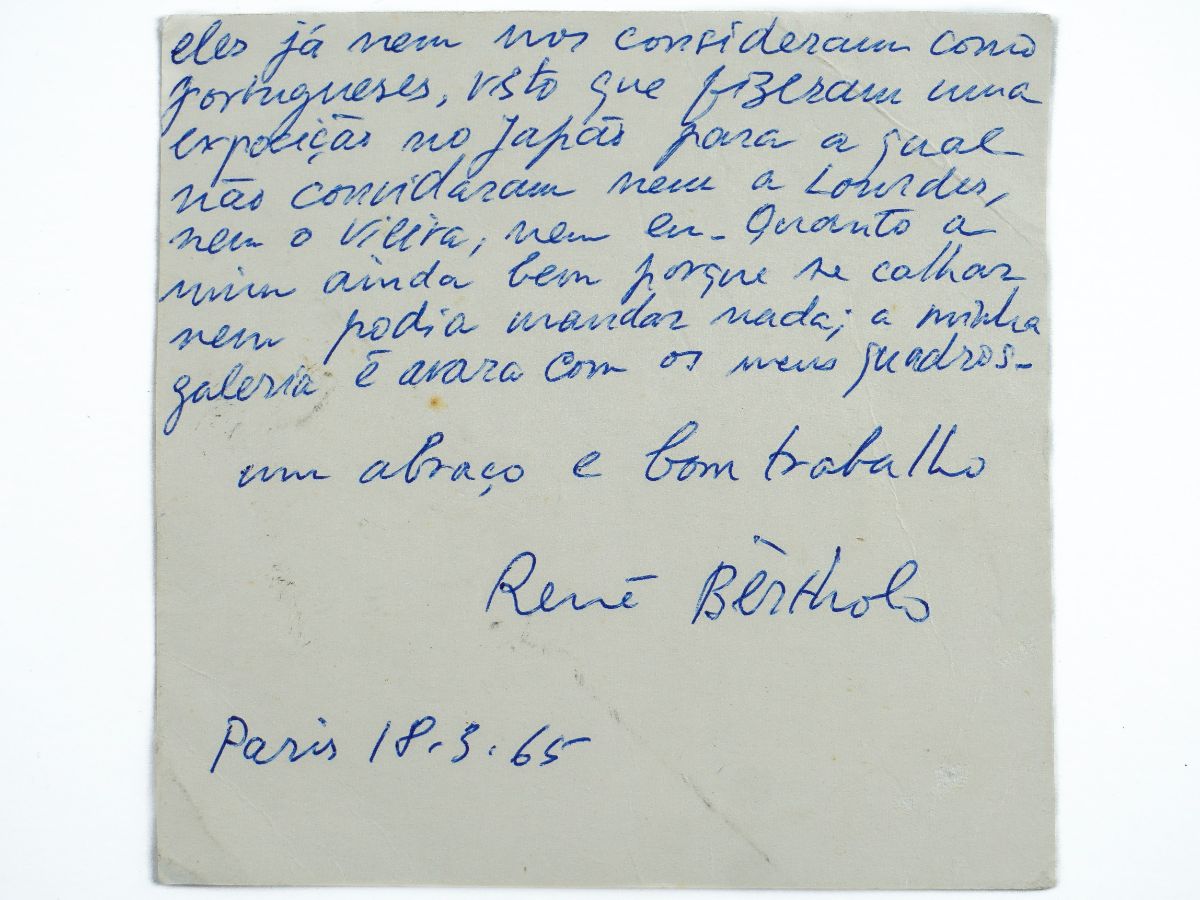 eles já nem nos consideram como
portugueses, visto que fizeram uma
exposição no Japão para a qual
não convidaram nem a Lourdes,
nem o Vieira, nem eu. Quanto a
mim ainda bem porque se calhar
nem podia mandar nada; a minha
galeria é avara com os meus quadros.
um abraço e bom trabalho
René Bèrtholo
Paris 18.3.65